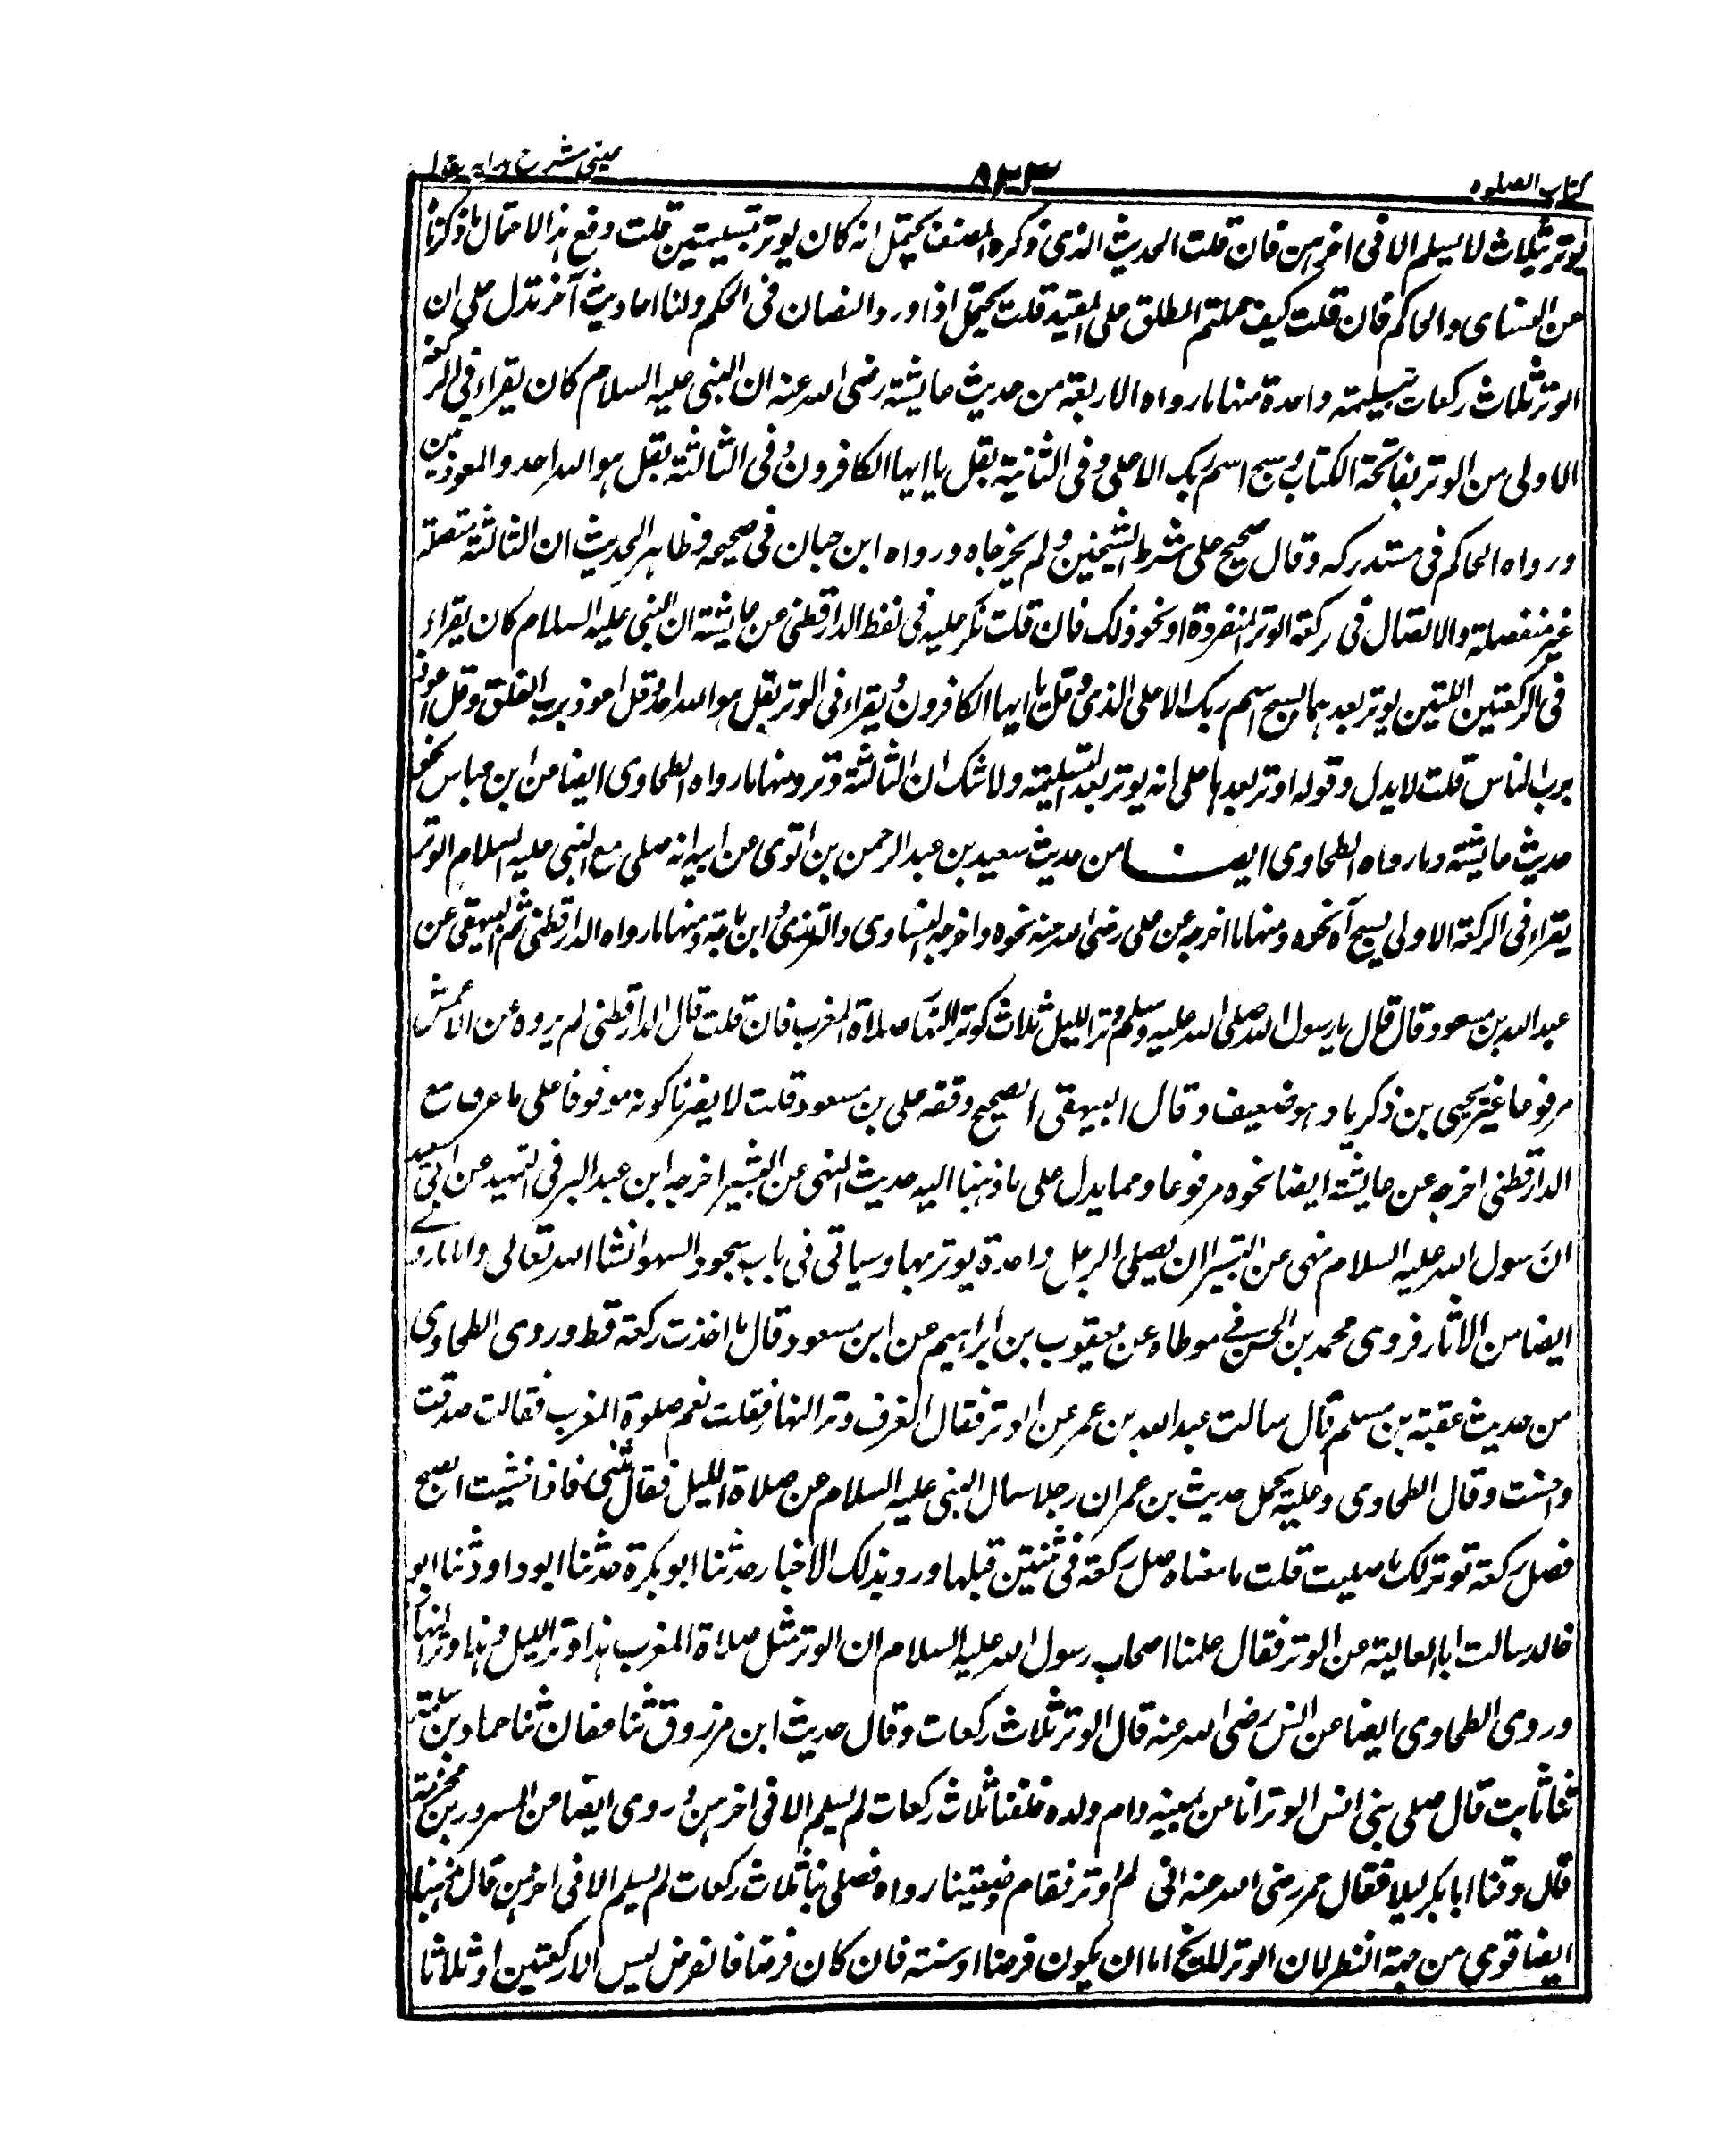 كتاب الصلوة
٨٢٣
عينى شرح هدايه جلد ا
يوتر بثلاث لا يسلم الا فى اخرهن فان قلت الحديث الذى ذكره المصنف يحتمل انه كان يوتر بتسليمتين قلت وقع هذا الاحتمال ما ذكرنا
عن النساى والحاكم فان قلت كيف حملتم المطلق على المقيد قلت يحتمل اذا ورد النصان فى الحكم ولنا احاديث آخر تدل على ان
الوتر ثلاث ركعات بتسليمة واحدة منها ما رواه الاربعة من حديث عايشة رضى الله عنه ان النبى عليه السلام كان يقراء فى الركعة
الاولى من الوتر بفاتحة الكتاب وسبح اسم ربك الاعلى وفى الثانية بقل يا ايها الكافرون وفى الثالثة بقل هو الله احد والمعوذتين
ورواه الحاكم فى مستدركه وقال صحيح على شرط الشيخين ولم يخرجاه ورواه ابن حبان فى صحيحه وظاهر الحديث ان الثالثة متصلة
غير منفصلة والاتصال فى ركعة الوتر المنفردة او نحو ذلك فان قلت نكر عليه فى لفظ الدارقطنى عن عايشة ان النبى عليه السلام كان يقراء
فى الركعتين اللتين يوتر بعدهما بسبح اسم ربك الاعلى الذى وقل يا ايها الكافرون ويقراء فى الوتر بقل هو الله احد وقل اعوذ برب الفلق وقل اعوذ
برب الناس قلت لا يدل وقوله اوتر بعدها على انه يوتر بعد التسليمة ولا شك ان الثالثة وتر ومنها ما رواه الطحاوى ايضا من ابن عباس نحو
حديث عايشة وما رواه الطحاوى ايضا من حديث سعيد بن عبد الرحمن بن اتوى عن ابيه انه صلى مع النبى عليه السلام الوتر
يقراء فى الركعة الاولى بسبح آه نحوه ومنها ما اخرجه عن على رضى الله عنه نحوه واخرجه النساوى والترمذى وابن ماجة ومنها ما رواه الدارقطنى ثم البيهقى عن
عبد الله بن مسعود قال قال يا رسول الله صلى الله عليه وسلم وتر الليل ثلاث كوتر النهار صلاة المغرب فان قلت قال الدارقطنى لم يروه عن الاعمش
مرفوعا غير يحيى بن ذكريا وهو ضعيف وقال البيهقى الصحيح وقفه على بن مسعود قلت لا يضرنا كونه موقوفا على ما عرف مع
الدارقطنى اخرجه عن عايشة ايضا نحوه مرفوعا ومما يدل على ما ذهبنا اليه حديث النهى عن البتيرا اخرجه ابن عبد البر فى التمهيد عن ابى سعيد
ان رسول الله عليه السلام نهى عن البتيرا ان يصلى الرجل واحدة يوتر بها وسياتى فى باب سجود السهو انشا الله تعالى واما ما روى
ايضا من الاثار فروى محمد بن الحسن فى موطاه عن يعقوب بن ابراهيم عن ابن مسعود قال ما اخذت ركعة قط وروى الطحاوى
من حديث عقبة بن مسلم قال سالت عبد الله بن عمر عن الوتر فقال اتعرف وتر النهار فقلت نعم صلوة المغرب فقالت صدقت
واحسنت وقال الطحاوى وعليه يحمل حديث بن عمر ان رجلا سال النبى عليه السلام عن صلاة الليل فقال مثنى مثنى فاذا خشيت الصبح
فصل ركعة توتر لك ما صليت قلت ما معناه صل ركعة فى ثنتين قبلها ورد بذلك الاخبار حدثنا ابو بكرة حدثنا ابو داود ثنا ابو
خالد سالت ابا العالية عن الوتر فقال علمنا اصحاب رسول الله عليه السلام ان الوتر مثل صلاة المغرب هذا وتر الليل وهذا وتر النهار
وروى الطحاوى ايضا عن انس رضى الله عنه قال الوتر ثلاث ركعات وقال حديث ابن مرزوق ثنا عفان ثنا حماد بن سلمة
ثنا ثابت قال صلى بنى انس الوتر انا من يمينه وام ولده خلفنا ثلاث ركعات لم يسلم الا فى اخرهن وروى ايضا من المسرور بن مخرمة
قال دفنا ابا بكر ليلا فقال عمر رضى الله عنه انى لم اوتر فقام وصفينا رواه فصلى بنا ثلاث ركعات لم يسلم الا فى اخرهن قال مذهبنا
ايضا قوى من جهة النظر لان الوتر للايخ اما ان يكون فرضا او سنة فان كان فرضا فالفرض ليس الا ركعتين او ثلاثا